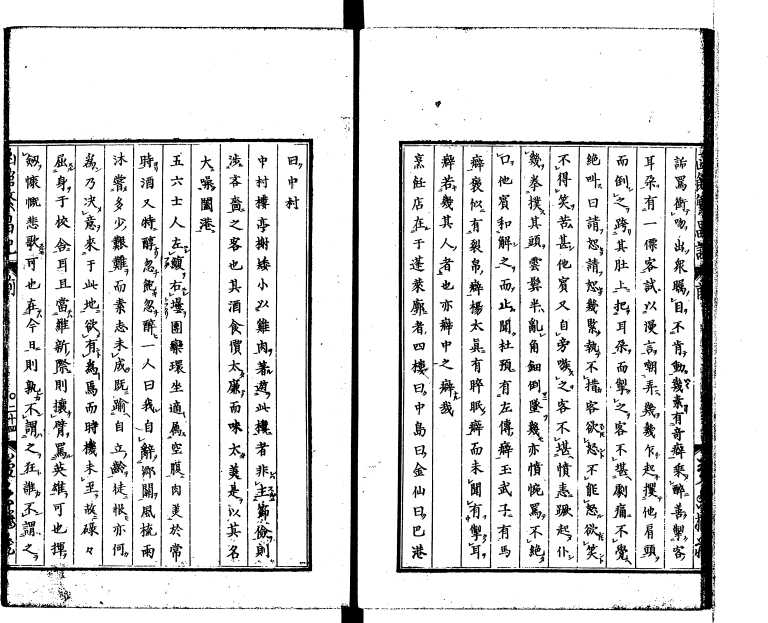 詬罵衝吻出衆矚目不肯動幾素有奇癖乘醉善掣客
耳朶有一儒客試以漫言嘲弄幾幾乍起攫他肩頭
而倒之跨其肚上把耳朶而掣之客不堪劇痛不覺
絶叫曰請恕請恕幾緊執不措客欲怒不能怒欲笑
不得笑苦甚他賓又自旁嗾之客不堪憤恚蹶起仆
幾拳撲其頭雲鬟半亂角鈿倒墜幾亦憤惋罵不絶
口他賓和解之而止聞杜預有左傳癖王武子有馬
癖褒姒有裂帛癖楊太眞有睟眠癖而未聞有掣耳
癖若幾其人者也亦癖中之癖哉
烹飪店在于蓬萊廓者四樓曰中島曰金仙曰巴港
曰中村
中村樓亭榭矮小以雞肉著遊此樓者非主節儉則
涉吝嗇之客也其酒食價太廉而味太美是以其名
大噪闔港
五六士人左顧右壜團欒環坐適爲空腹肉美於常
時酒又特醇忽飽忽醉一人曰我自辭鄉關風梳雨
沐嘗多少艱難而素志未成既踰自立齡徒恨亦何
爲乃决意來于此地欲有爲焉而時機未至故碌々
屈身于校舍耳且當維新際則攘臂罵英雄可也撣
劒慷慨悲歌可也在今日則孰不謂之狂誰不謂之
〇二十四